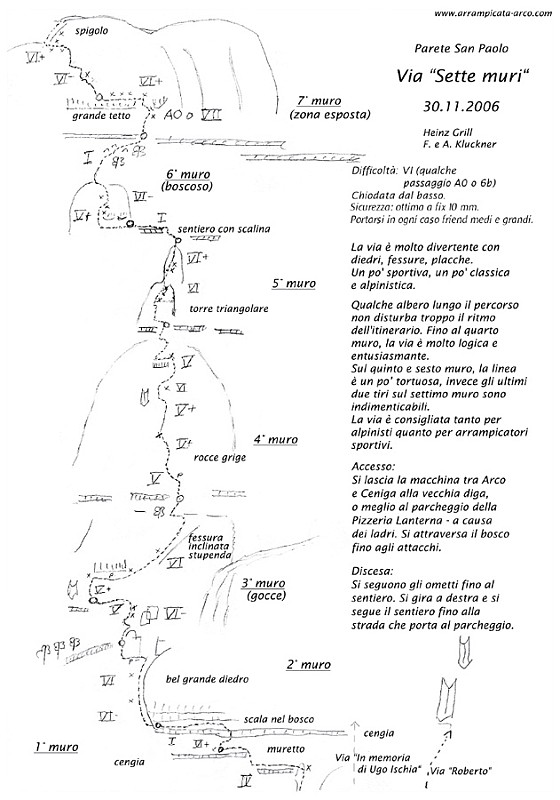 www.arrampicata-arco.com
Parete San Paolo
Via "Sette muri"
30.11.2006
Heinz Grill
F. e A. Kluckner
Difficoltà: VI (qualche
passaggio A0 o 6b)
Chiodata dal basso.
Sicurezza: ottima a fix 10 mm.
Portarsi in ogni caso friend medi e grandi.
La via è molto divertente con
diedri, fessure, placche.
Un po' sportiva, un po' classica
e alpinistica.
Qualche albero lungo il percorso
non disturba troppo il ritmo
dell'itinerario. Fino al quarto
muro, la via è molto logica e
entusiasmante.
Sul quinto e sesto muro, la linea
è un po' tortuosa, invece gli ultimi
due tiri sul settimo muro sono
indimenticabili.
La via è consigliata tanto per
alpinisti quanto per arrampicatori
sportivi.
Accesso:
Si lascia la macchina tra Arco
e Ceniga alla vecchia diga,
o meglio al parcheggio della
Pizzeria Lanterna - a causa
dei ladri. Si attraversa il bosco
fino agli attacchi.
Discesa:
Si seguono gli ometti fino al
sentiero. Si gira a destra e si
segue il sentiero fino alla
strada che porta al parcheggio.
spigolo
VI+
VI-
VII+
grande tetto
A0 o VII
7° muro
(zona esposta)
I
6° muro
(boscoso)
VI-
V+
I
sentiero con scalina
VI+
VI
5° muro
torre triangolare
V
VI
V+
V+
4° muro
rocce grige
V
fessura
inclinata
stupenda
VI
3° muro
(gocce)
V+
V
VI-
2° muro
VI
bel grande diedro
VI-
scala nel bosco
cengia
I
VI+
1° muro
cengia
muretto
IV
Via "In memoria
di Ugo Ischia"
Via "Roberto"